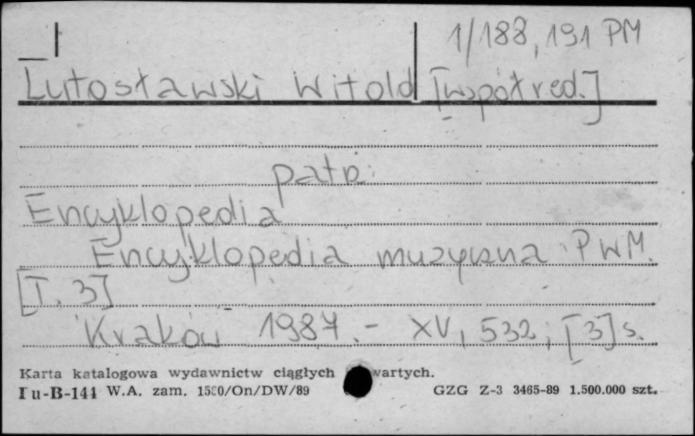 1/188,191 PM
Lutosławski Witold [współred.]
patrz:
Encyklopedia
Encyklopedia muzyczna PWM.
[T. 3]
Kraków 1987.- XV, 532, [3] s.
Karta katalogowa wydawnictw ciągłych wartych.
Pu-B-144 W.A. zam. 1580/On/DW/89 GZG Z-3 3465-89 1.500.000 szt.